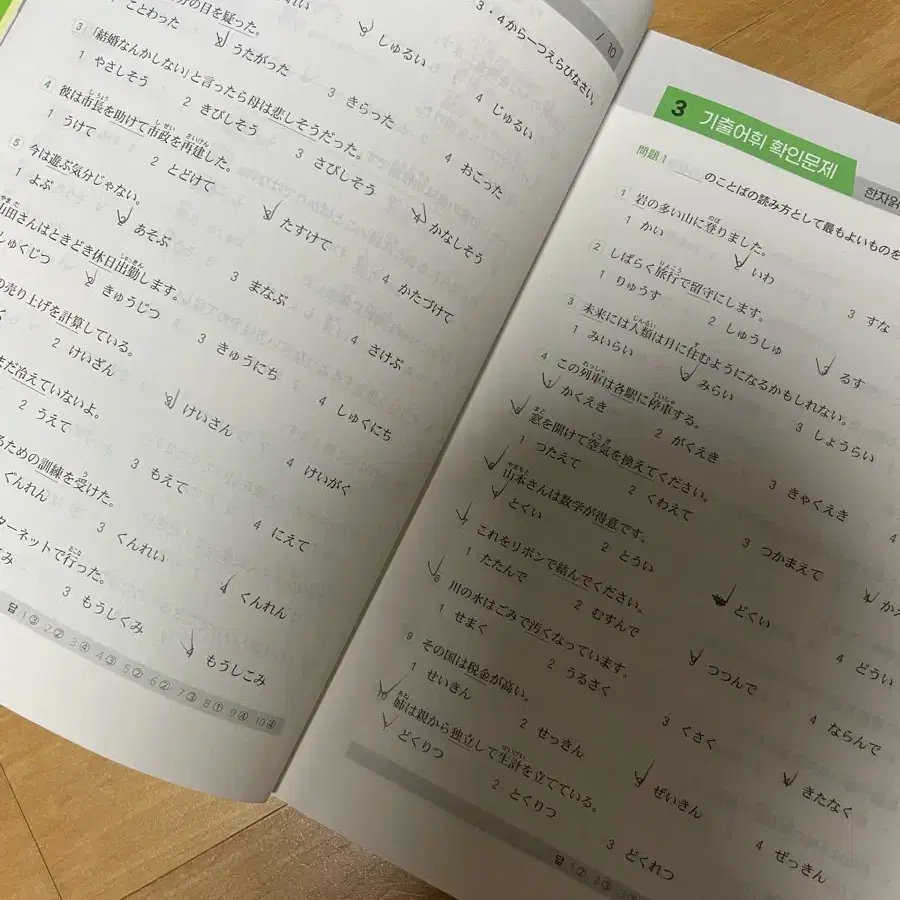 3・4から一つえらびなさい。
/ 10
の日を疑った。
ことわった
2 うたがった
3 きらった
4 おこった
3 しゅるい
4 じゅるい
3 「結婚なんかしない」と言ったら母は悲しそうだった。
1 やさしそう
2 きびしそう
3 さびしそう
4 かなしそう
4 彼は市長を助けて市政を再建した。
しちょう
しせい
さいけん
1 うけて
2 とどけて
3 たすけて
4 かたづけて
5 今は遊ぶ気分じゃない。
1 よぶ
2 あそぶ
3 まなぶ
4 さけぶ
山田さんはときどき休日出勤します。
やまだ
しゅっきん
しゅくじつ
2 きゅうじつ
3 きゅうにち
4 しゅくにち
の売り上げを計算している。
2 けいざん
3 けいさん
4 けいがく
まだ冷えていないよ。
2 うえて
3 もえて
4 にえて
るための訓練を受けた。
う
くんれん
3 くんれい
4 くんれん
ターネットで行った。
おこな
3 もうしくみ
4 もうしこみ
답 1③ 2② 3④ 4③ 5② 6② 7③ 8① 9④ 10④
3 기출어휘 확인문제
한자읽
問題1
のことばの読み方として最もよいものを
1 岩の多い山に登りました。
のぼ
1 かい
2 いわ
3 すな
2 しばらく旅行で留守にします。
りょこう
1 りゅうす
2 しゅうしゅ
3 るす
3 未来には人類は月に住むようになるかもしれない。
じんるい
す
1 みいらい
2 みらい
3 しょうらい
4 この列車は各駅に停車する。
れっしゃ
ていしゃ
1 かくえき
2 がくえき
3 きゃくえき
4
窓を開けて空気を換えてください。
まど
くうき
1 つたえて
2 くわえて
3 つかまえて
4 か
山本さんは数学が得意です。
やまもと
とくい
2 とうい
3 どくい
4 どうい
7 これをリボンで結んでください。
1 たたんで
2 むすんで
3 つつんで
4 ならんで
8 川の水はごみで汚くなっています。
1 せまく
2 うるさく
3 くさく
4 きたなく
9 その国は税金が高い。
1 せいきん
2 せっきん
3 ぜいきん
4 ぜっきん
10 姉は親から独立して生計を立てている。
あね
せいけい
どくりつ
2 とくりつ
3 どくれつ
답 1② 2③